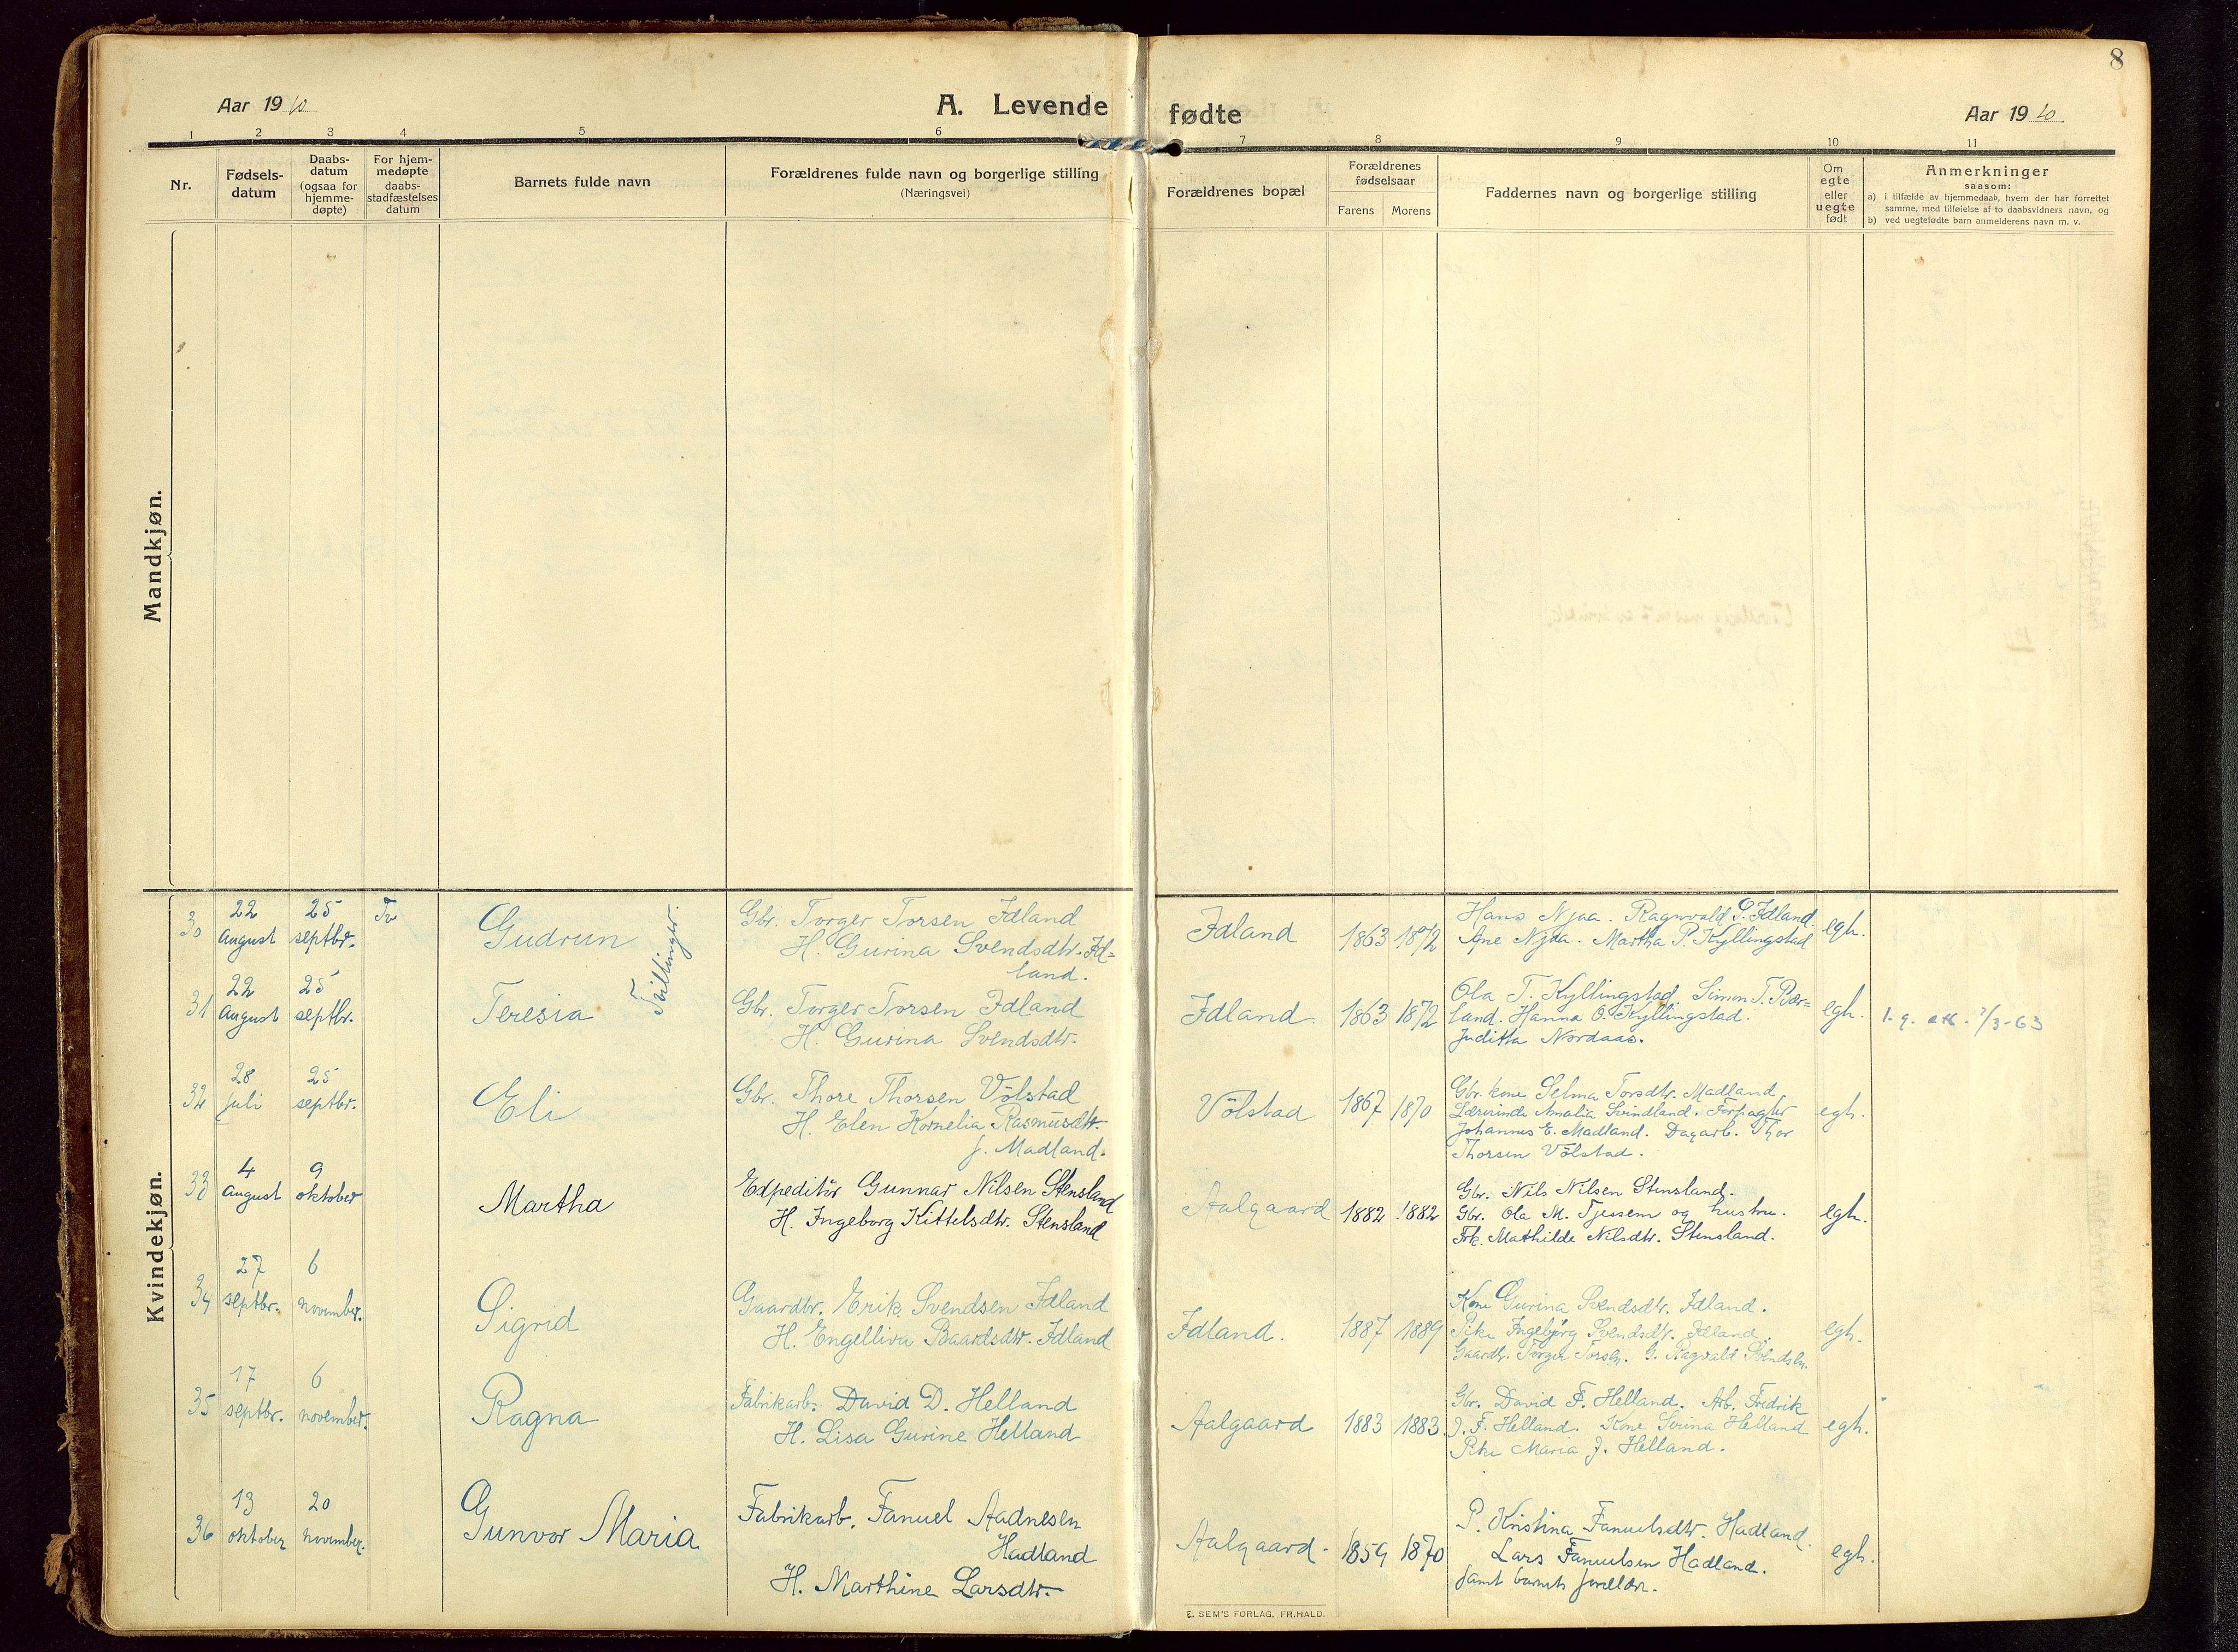 8
Aar 1910
A. Levende fødte
Aar 1910.
1 2 3 4 5 6 7 8 9 10 11
Nr.
Fødsels-
datum
Daabs-
datum
(ogsaa for
hjemme-
døpte)
For hjem-
medøpte
daabs-
stadfæstelses
datum
Barnets fulde navn
Forældrenes fulde navn og borgerlige stilling
(Næringsvei)
Forældrenes bopæl
Forældrenes
fødselsaar
Farens Morens
Faddernes navn og borgerlige stilling
Om
egte
eller
uegte
født
Anmerkninger
saasom:
a) i tilfælde av hjemmedaab, hvem der har forrettet
samme, med tilføielse af to daabsvidners navn, og
b) ved uegtefødte barn anmelderens navn m. v.
Mandkjøn.
Kvindekjøn.
30
22
august
25
septbr.
Tv
Gudrun
Tvillinger.
Gbr. Torger Torsen Idland
H. Gurina Svendsdtr. Id=
land.
Idland
1863 1872
Hans Njaa. Ragnvald S. Idland.
Ane Njaa. Martha P. Kyllingstad
egh.
31
22
August
25
septbr.
Teresia
Gbr. Torger Torsen Idland
H. Gurina Svendsdtr.
Idland.
1863 1872
Ola T. Kyllingstad. Simon T. Bær=
land. Hanna O. Kyllingstad.
Juditta Nordaas.
egh.
32
28
juli
25
septbr.
Eli
Gbr. Thore Thorsen Völstad
H. Elen Kornelia Rasmusdtr.
f. Madland.
Völstad
1867 1870
Gbr. kone Selma Torsdtr. Madland,
Lærerinde Amalia Svindland. Forpagter
Johannes E. Madland. Dagarb. Thor
Thorsen Völstad.
egh.
33
4
August
9
oktober
Martha
Expeditör Gunnar Nilsen Stensland
H. Ingeborg Kittelsdtr. Stensland
Aalgaard
1882 1882
Gbr. Nils Nilsen Stensland.
Gbr. Ola M. Tjessem og hustru.
Frk. Mathilde Nilsdtr. Stensland.
egh.
34
27
septbr.
6
november.
Sigrid
Gaardbr. Erik Svendsen Idland
H. Engelliva Baardsdtr. Idland
Idland.
1887 1889
Kone Gurina Svendsdtr. Idland.
Pike Ingebjørg Svendsdtr. Idland.
Gaardb. Torger Torsen. G. Ragvald Svendsen.
egh.
35
17
septbr.
6
november.
Ragna
Fabrikarb. David D. Helland
H. Lisa Gurine Helland
Aalgaard
1883 1883.
Gbr. David F. Helland. Arb. Fredrik
J. F. Helland. Kone Serina Helland
Pike Maria J. Helland.
egh.
36
13
oktober
20
november.
Gunvor Maria
Fabrikarb. Fanuel Aadnesen
Hadland
H. Marthine Larsdtr.
Aalgaard.
1859 1870
P. Kristina Fanuelsdtr. Hadland.
Lars Fanuelsen Hadland.
samt barnets forældre.
egh.
E. SEM'S FORLAG, FR.HALD.